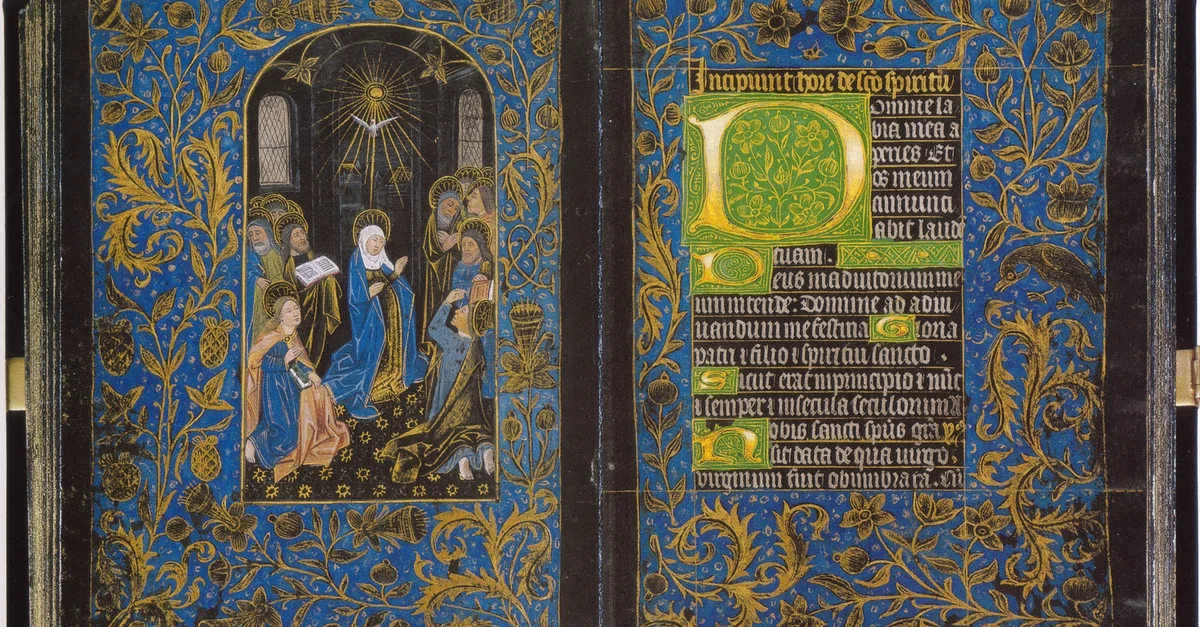 Incipiunt hore de sc̃o spiritu
Domine la
bia mea a
peries Et
os meum
annunci
abit laudẽ
tuam.
Deus in adiutorium me
um intende: Domine ad adiu
uandum me festina Gloria
patri ⁊ filio ⁊ spiritui sancto.
Sicut erat in principio ⁊ nũc
⁊ semper ⁊ in secula seculorum
Nobis sancti sp̃us gra
sit data de qua uirgo
uirginum fuit obumbrata.